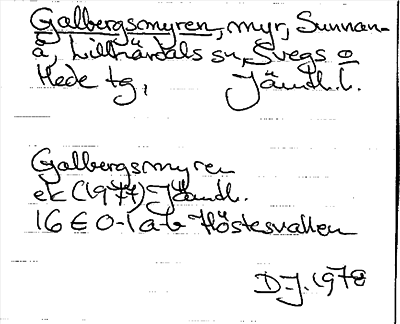 Galbergsmyren, myr, Sunnan-
å, Lillhärdals sn, Svegs o
Hede tg, Jämtl. l.
Galbergsmyren
ek (1977) Jämtl.
16 E 0-1 a-b Höstesvallen
D-J. 1978